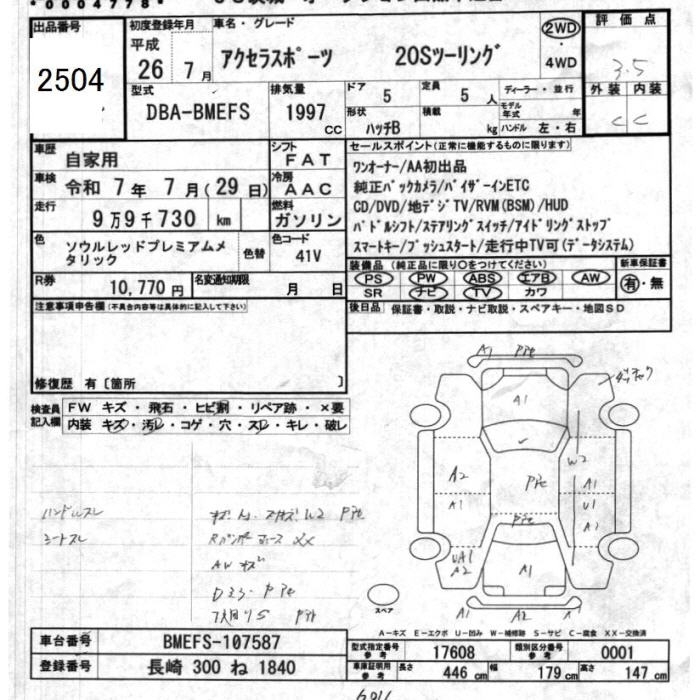 *0004778*
出品番号
2504
初度登録年月
平成
26年 7月
車名・グレード
アクセラスポーツ 20Sツーリング
2WD
・
4WD
評価点
3.5
外装 内装
C C
型式
DBA-BMEFS
排気量
1997
cc
ドア 5
形状
ハッチB
定員 5人
積載 kg
ディーラー・並行
モデル年式 年
ハンドル 左・右
車歴 自家用
車検 令和 7年 7月(29日)
走行 9万9千730 km
シフト
FAT
冷房
AAC
燃料
ガソリン
色 ソウルレッドプレミアムメタリック
色替
色コード
41V
R券 10,770円
名変通知期限 月 日
セールスポイント(正常に機能するものに限ります)
ワンオーナー/AA初出品
純正バックカメラ/バイザーインETC
CD/DVD/地デジTV/RVM(BSM)/HUD
パドルシフト/ステアリングスイッチ/アイドリングストップ
スマートキー/プッシュスタート/走行中TV可(データシステム)
装備品(純正品に限り○をつけてください)
PS PW ABS エアB AW
SR ナビ TV カワ
新車保証書
有・無
後日品 保証書・取説・ナビ取説・スペアキー・地図SD
注意事項申告欄(不具合内容等は具体的に記入して下さい)
修復歴 有〔箇所 〕
検査員記入欄
FW キズ・飛石・ヒビ割・リペア跡・×要
内装 キズ・汚レ・コゲ・穴・スレ・キレ・破レ
ハンドルスレ
シートスレ
AWキズ
A1
A1
W2
A2
A1
A1
U1
A1
UA1
A2
A1
A1
A2
スペア
A-キズ E-エクボ U-凹み W-補修跡 S-サビ C-腐食 XX-交換済
車台番号 BMEFS-107587
登録番号 長崎 300 ね 1840
型式指定番号 参考 17608
類別区分番号 参考 0001
車庫証明用 参考 長さ 446cm 幅 179cm 高さ 147cm